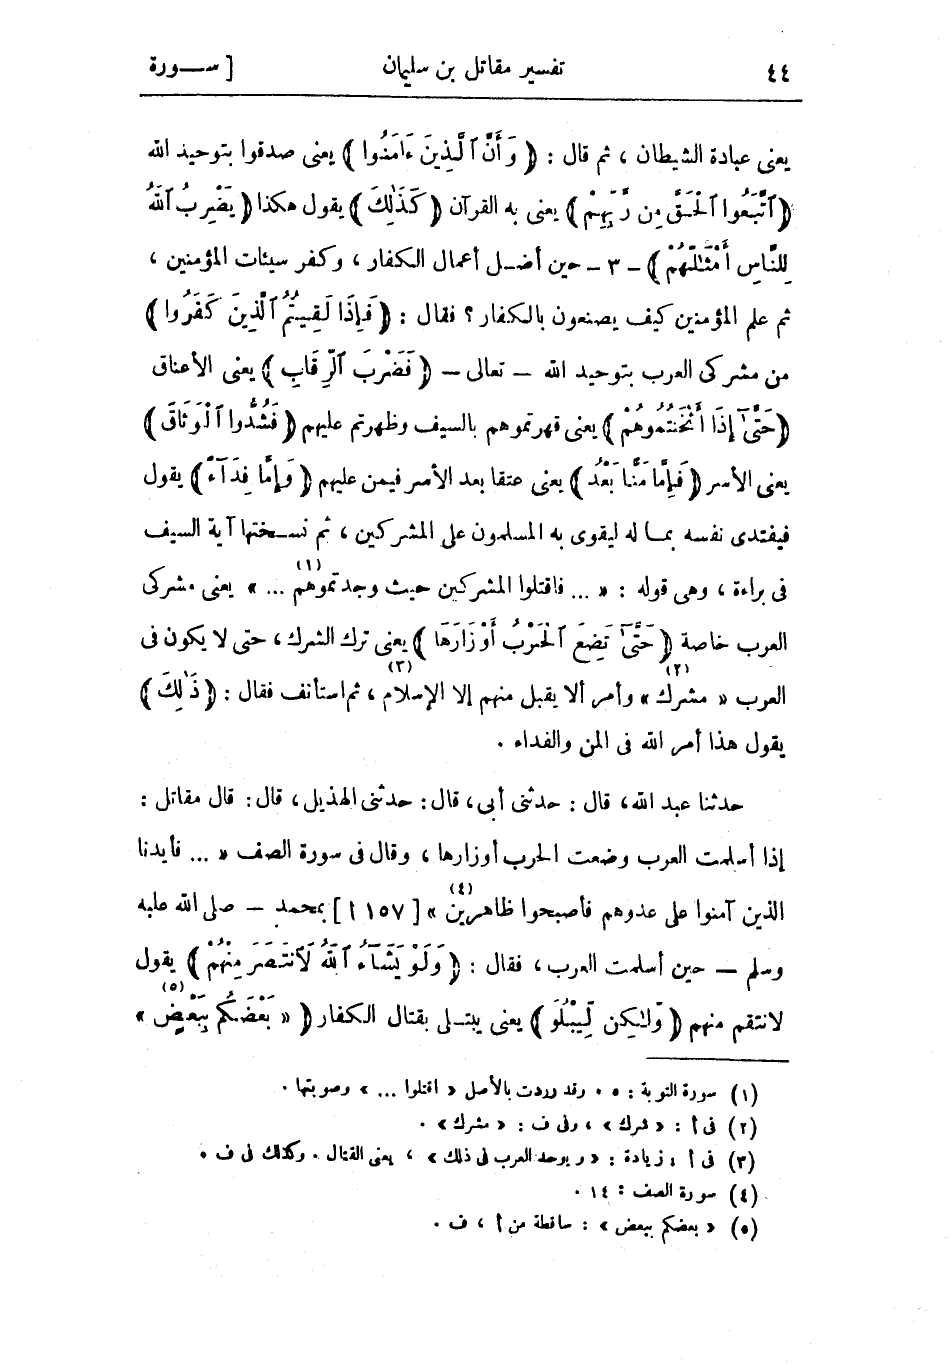 ٤٤ تفسير مقاتل بن سليمان [ ســورة
يعنى عبادة الشيطان ، ثم قال : ( وَأَنَّ ٱلَّذِينَ ءَامَنُوا ) يعنى صدقوا بتوحيد الله
( ٱتَّبَعُوا ٱلْحَقَّ مِن رَّبِّهِمْ ) يعنى به القرآن ( كَذَٰلِكَ ) يقول هكذا ( يَضْرِبُ ٱللَّهُ
لِلنَّاسِ أَمْثَٰلَهُمْ ) - ٣ - حين أضـل أعمال الكفار ، وكفر سيئات المؤمنين ،
ثم علم المؤمنين كيف يصنعون بالكفار ؟ فقال : ( فَإِذَا لَقِيتُمُ ٱلَّذِينَ كَفَرُوا )
من مشركى العرب بتوحيد الله - تعالى - ( فَضَرْبَ ٱلرِّقَابِ ) يعنى الأعناق
( حَتَّىٰٓ إِذَا أَثْخَنتُمُوهُمْ ) يعنى قهرتموهم بالسيف وظهرتم عليهم ( فَشُدُّوا ٱلْوَثَاقَ )
يعنى الأسر ( فَإِمَّا مَنًّا بَعْدُ ) يعنى عتقا بعد الأسر فيمن عليهم ( وَإِمَّا فِدَآءً ) يقول
فيفتدى نفسه بمـا له ليقوى به المسلمون على المشركين ، ثم نسـختها آية السيف
فى براءة ، وهى قوله : « ... فاقتلوا المشركين حيث وجدتموهم ... » (١) يعنى مشركى
العرب خاصة ( حَتَّىٰ تَضَعَ ٱلْحَرْبُ أَوْزَارَهَا ) يعنى ترك الشرك ، حتى لا يكون فى
العرب « مشرك » (٢) وأمر ألا يقبل منهم إلا الإسلام (٣) ، ثم استأنف فقال : ( ذَٰلِكَ )
يقول هذا أمر الله فى المن والفداء .
حدثنا عبد الله ، قال : حدثنى أبى ، قال : حدثنى الهذيل ، قال : قال مقاتل :
إذا أسلمت العرب وضعت الحرب أوزارها ، وقال فى سورة الصف « ... فأيدنا
الذين آمنوا على عدوهم فأصبحوا ظاهرين » (٤) [ ١٥٧ أ ] بمحمد - صلى الله عليه
وسلم - حين أسلمت العرب ، فقال : ( وَلَوْ يَشَآءُ ٱللَّهُ لَٱنتَصَرَ مِنْهُمْ ) يقول
لانتقم منهم ( وَلَٰكِن لِّيَبْلُوَ ) يعنى يبتـلى بقتال الكفار ( « بَعْضَكُم بِبَعْضٍ » (٥)
(١) سورة التوبة : ٥ . وقد وردت بالأصل « اقتلوا ... » وصوبتها .
(٢) فى أ : « شرك » ، وفى ف : « مشرك » .
(٣) فى أ ، زيادة : « ر يوحد العرب فى ذلك » ، يعنى القتال . وكذلك فى ف .
(٤) سورة الصف : ١٤ .
(٥) « بعضكم ببعض » : ساقطة من أ ، ف .